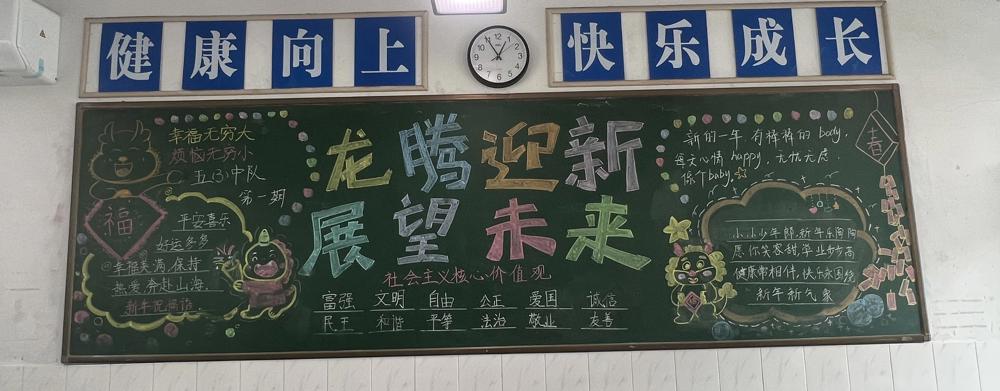 健康向上
快乐成长
幸福无穷大
烦恼无穷小
五(3)中队
第一期
福
平安喜乐
好运多多
幸福美满,保持
热爱奔赴山海.
新年祝福语.
龙腾迎新
展望未来
社会主义核心价值观
富强 文明 自由 公正 爱国 诚信
民主 和谐 平等 法治 敬业 友善
新的一年,有棒棒的 body.
每天心情 happy. 无忧无虑.
baby.
春
小小少年郎,新年乐陶陶
愿你笑容甜,学业妙高
健康常相伴,快乐永围绕
新年新气象